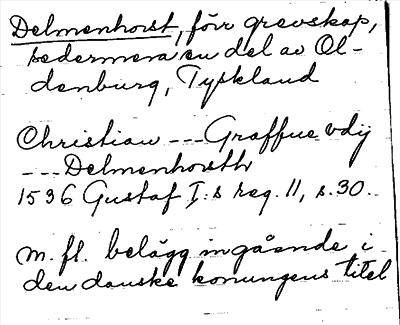 Delmenhorst, förr grevskap,
sedermera en del av Ol-
denburg, Tyskland
Christian --- Graffue vdij
--- Delmenhorsth
1536 Gustaf I:s reg. 11, s. 30.
m. fl. belägg ingående i
den danske konungens titel